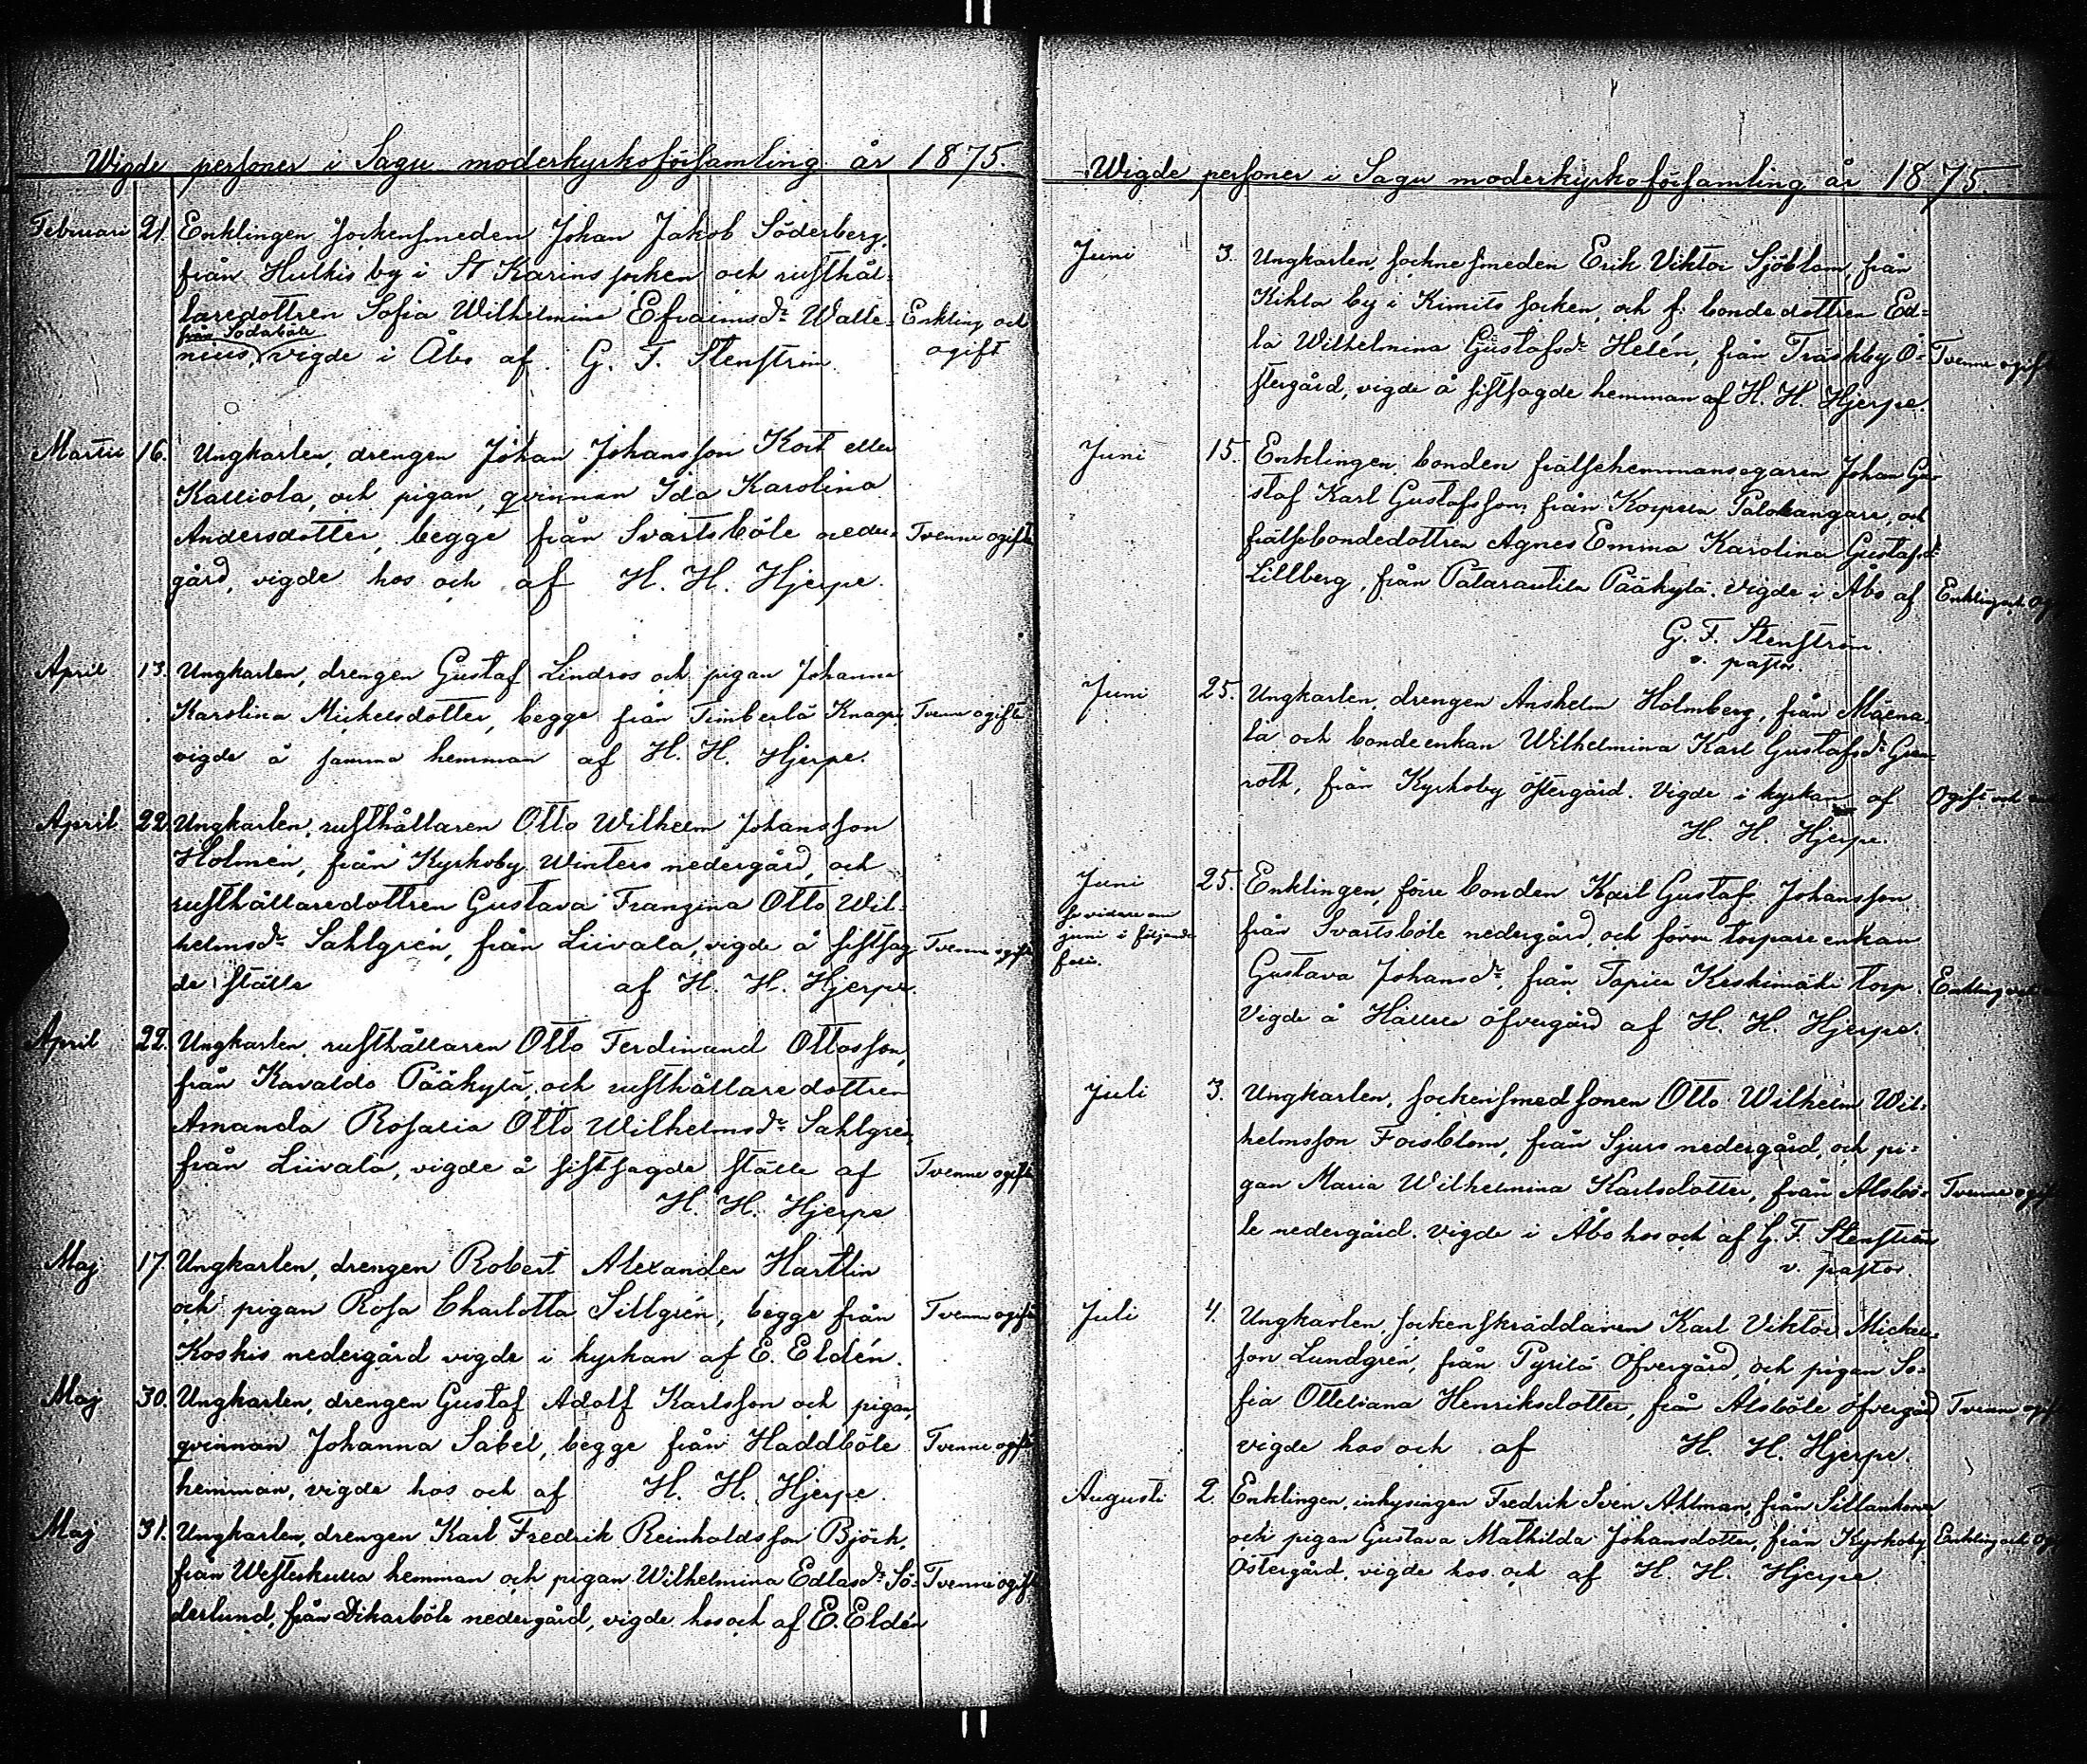 Wigde personer i Sagu moderkyrkoförsamling år 1875.
Februari 21. Enklingen sockensmeden Johan Jakob Söderberg,
från Hulkis by i St Karins socken och rusthål-
laredottren Sofia Wilhelmina Efraimsdr Walle- Enkling och
från Södaböle
nius, vigde i Åbo af G. F. Stenström ogift
Martii 16. Ungkarlen, drengen Johan Johansson Koit eller
Kalliola, och pigan, qvinnan Ida Karolina
Andersdotter, begge från Svartsböle neder- Tvenne ogifte
gård, vigde hos och af H. H. Hjerpe.
April 13. Ungkarlen, drengen Gustaf Lindros och pigan Johanna
Karolina Mickelsdotter, begge från Timberlä Knapi Tvenne ogifte
vigde å samma hemman af H. H. Hjerpe.
April 22. Ungkarlen, rusthållaren Otto Wilhelm Johansson
Holmén, från Kyrkoby Winters nedergård, och
rusthållaredottren Gustava Franzina Otto Wil-
helmsdr Sahlgrén, från Liivala, vigde å sistsag- Tvenne ogifte
de ställe af H. H. Hjerpe.
April 22. Ungkarlen, rusthållaren Otto Ferdinand Ottosson,
från Kavaldo Pääkylä, och rusthållaredottren
Amanda Rosalia Otto Wilhelmsdr Sahlgrén,
från Liivala, vigde å sistsagde ställe af Tvenne ogifte
H. H. Hjerpe
Maj 17. Ungkarlen, drengen Robert Alexander Hartlin
och pigan Rosa Charlotta Sillgrén, begge från Tvenne ogifte
Koskis nedergård vigde i kyrkan af E. Eldén.
Maj 30. Ungkarlen, drengen Gustaf Adolf Karlsson och pigan,
qvinnan Johanna Sabel, begge från Haddböle Tvenne ogifte
hemman, vigde hos och af H. H. Hjerpe.
Maj 31. Ungkarlen, drengen Karl Fredrik Reinholdsson Björk,
från Westerkulla hemman och pigan Wilhelmina Edlasdr Sö- Tvenne ogifte
derlund, från Dikarböle nedergård, vigde hos och af E. Eldén
Wigde personer i Sagu moderkyrkoförsamling år 1875.
Juni 3. Ungkarlen, socknesmeden Erik Viktor Sjöblom, från
Kikla by i Kimito socken, och f. bondedottren Ed-
la Wilhelmina Gustafsdr Helén, från Träskby Ö- Tvenne ogift
stergård, vigde å sistsagde hemman af H. H. Hjerpe.
Juni 15. Enklingen, bonden frälsehemmansegaren Johan Gu-
staf Karl Gustafsson, från Korpela Palokangare, och
frälsebondedottren Agnes Emma Karolina Gustafsdr
Lillberg, från Patarautila Pääkylä. Vigde i Åbo af Enkling och Og
G. F. Stenström.
v. pastor.
Juni 25. Ungkarlen, drengen Anshelm Holmberg, från Mäena-
la och bondeenkan Wilhelmina Karl Gustafsdr Gran-
roth, från Kyrkoby östergård. Vigde i kyrkan af Ogift och
H. H. Hjerpe.
Juni 25. Enklingen, förre bonden Karl Gustaf Johansson
se vidare om
juni i följande
från Svartsböle nedergård, och förra torpare enkan
Gustava Johansdr, från Tapila Keskimäki torp. Enkling och
Vigde å Hällele öfvergård af H. H. Hjerpe.
Juli 3. Ungkarlen, sockensmedsonen Otto Wilhelm Wil-
helmsson Forsblom, från Sjurs nedergård, och pi-
gan Maria Wilhelmina Karlsdotter, från Alsbö- Tvenne ogif
le nedergård. Vigde i Åbo hos och af G. F. Stenström
v. pastor.
Juli 4. Ungkarlen, sockenskräddaren Karl Viktor Mickels-
son Lundgrén, från Pyrilä Öfvergård, och pigan So-
fia Otteliana Henriksdotter, från Alsböle öfvergård Tvenne ogif
vigde hos och af H. H. Hjerpe.
Augusti 2. Enklingen, inhysingen Fredrik Sven Ahlman, från
och pigan Gustava Mathilda Johansdotter, från Kyrkoby Enkling och Og
Östergård, vigde hos och af H. H. Hjerpe.